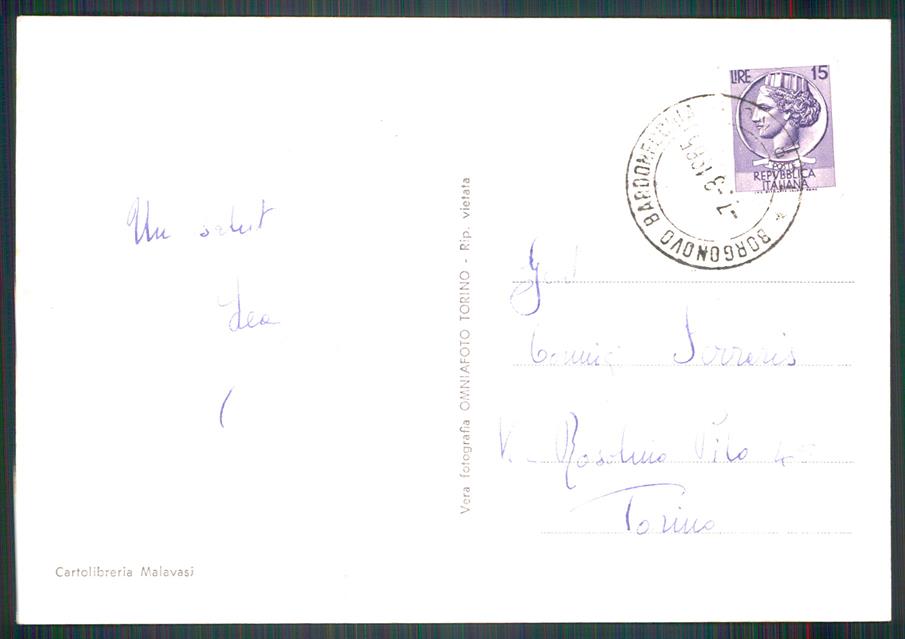 Un salut
Lea
Cartolibreria Malavasi
Vera fotografia OMNIAFOTO TORINO - Rip. vietata
LIRE 15
POSTE
REPVBBLICA
ITALIANA
BORGONOVO BARDONECCHIA
-7.-3 1965
V. Rosolino Pilo
Torino